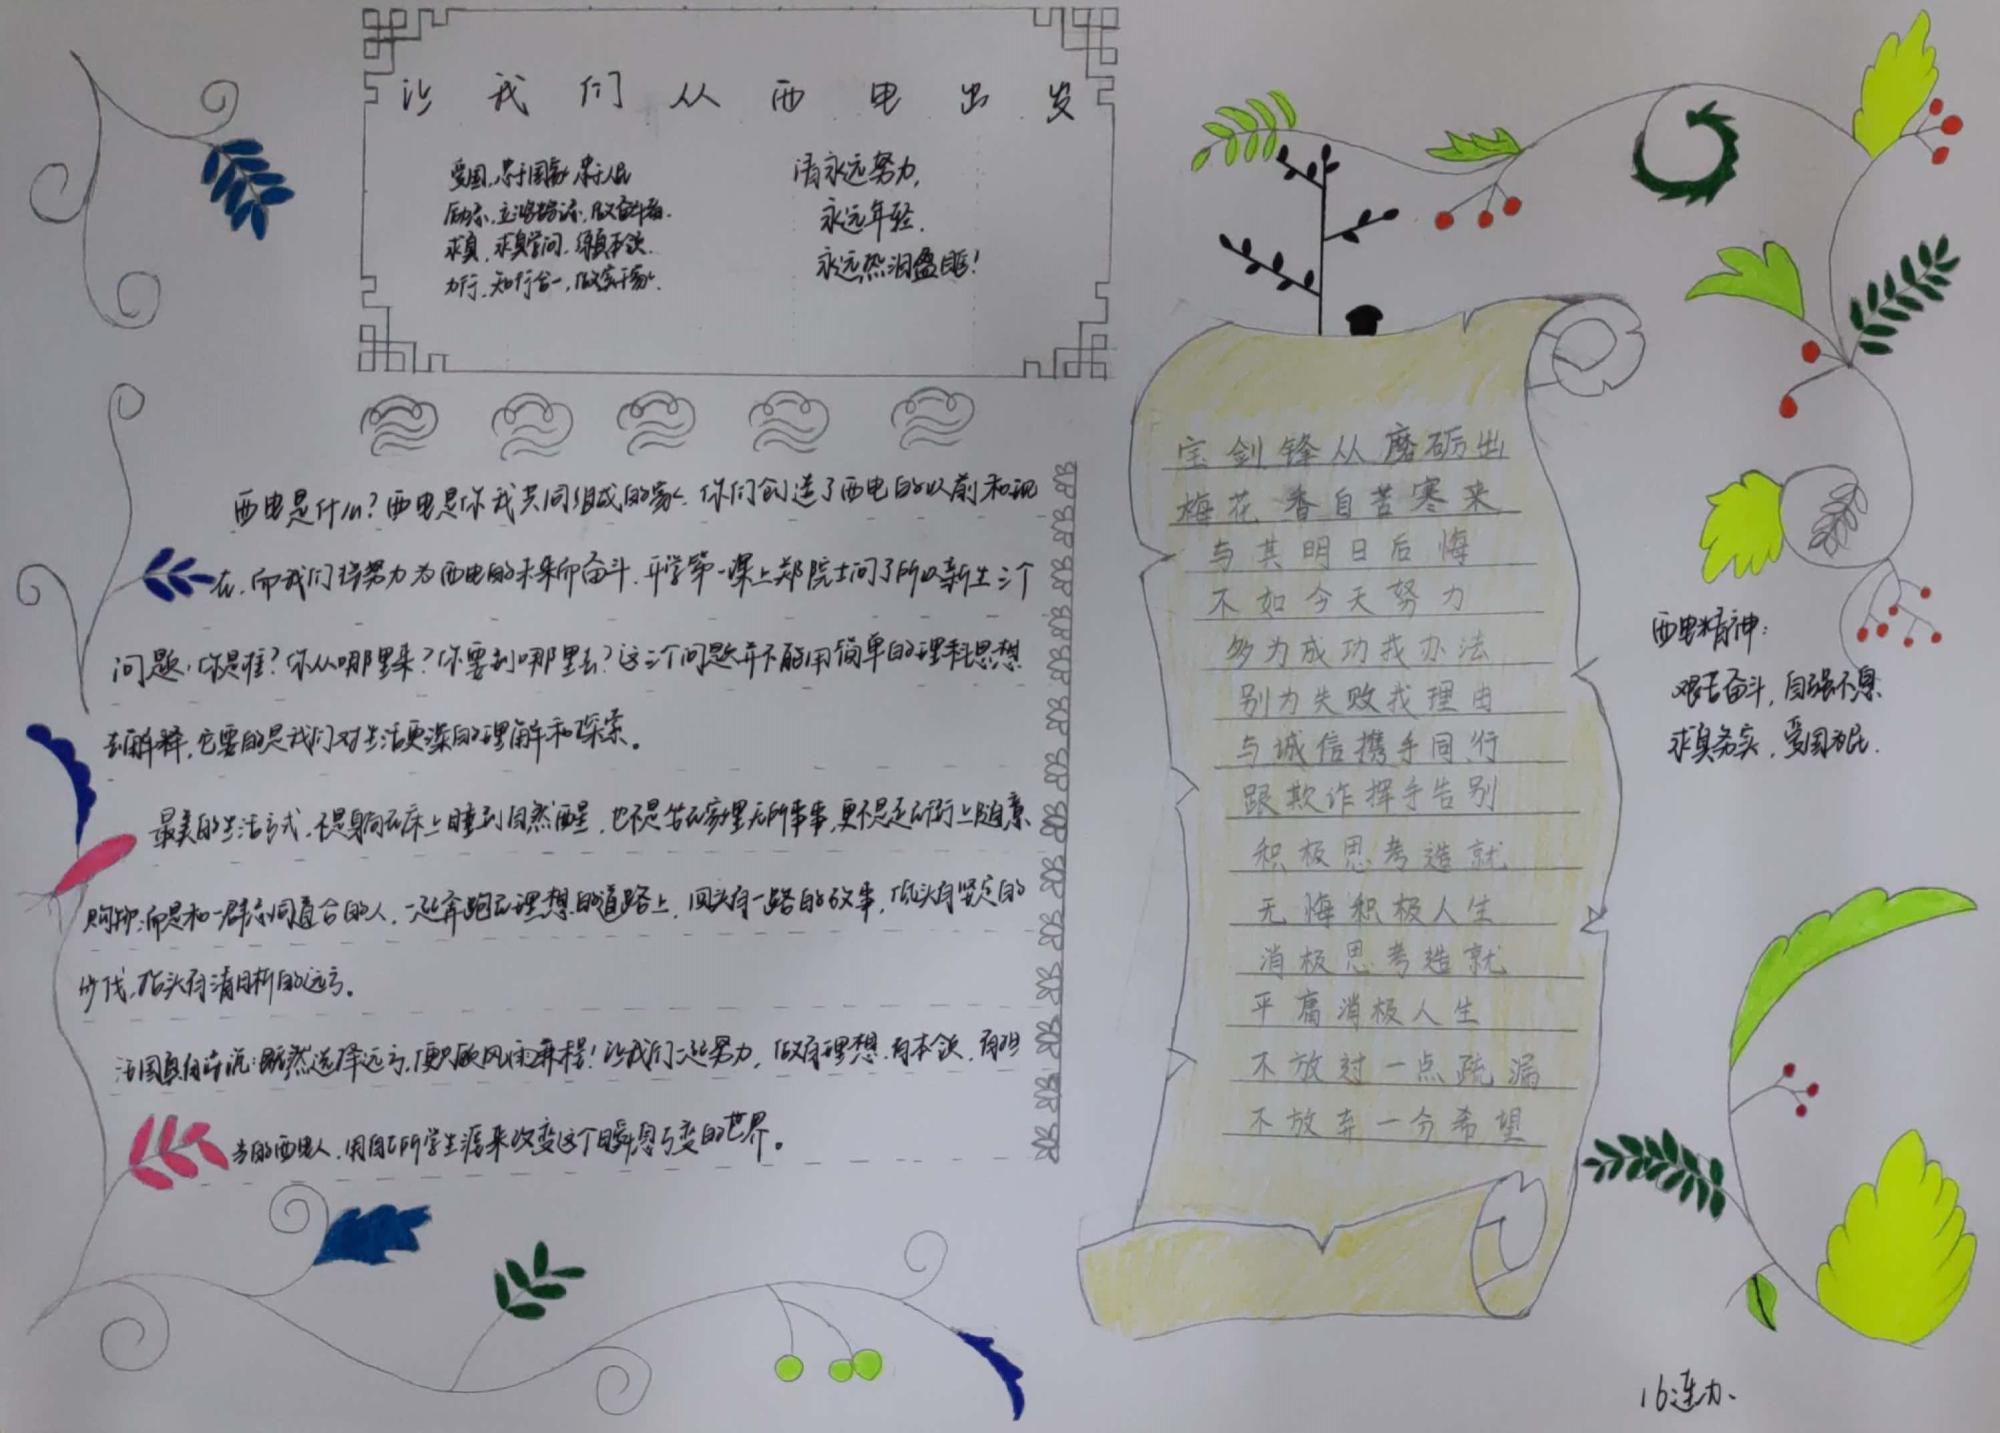 让我们从西电出发
爱国,忠于国家,忠于人民
励志,立鸿鹄志,做奋斗者.
求真,求真学问,练真本领.
力行,知行合一,做实干家.
请永远努力,
永远年轻,
永远热泪盈眶!
西电是什么?西电是你我共同组成的家,你们创造了西电的以前和现
在,而我们将努力为西电的未来而奋斗,开学第一课上郑院士问了所以新生三个
问题:你是谁?你从哪里来?你要到哪里去?这三个问题并不能用简单的理科思想
去解释,它要的是我们对生活更深的理解和探索。
最美的生活方式,不是躺在床上睡到自然醒,也不是坐在家里无所事事,更不是走在街上随意
购物;而是和一群志同道合的人,一起奔跑在理想的道路上,回头有一路的故事,低头有坚定的
步伐,抬头有清晰的远方。
汪国真有诗说:既然选择远方,便只顾风雨兼程!让我们一起努力,做有理想,有本领,有担
当的西电人,用自己所学生涯来改变这个瞬息万变的世界。
宝剑锋从磨砺出
梅花香自苦寒来
与其明日后悔
不如今天努力
多为成功找办法
别为失败找理由
与诚信携手同行
跟欺诈挥手告别
积极思考造就
无悔积极人生
消极思考造就
平庸消极人生
不放过一点疏漏
不放弃一分希望
西电精神:
艰苦奋斗,自强不息
求真务实,爱国为民.
16连力、